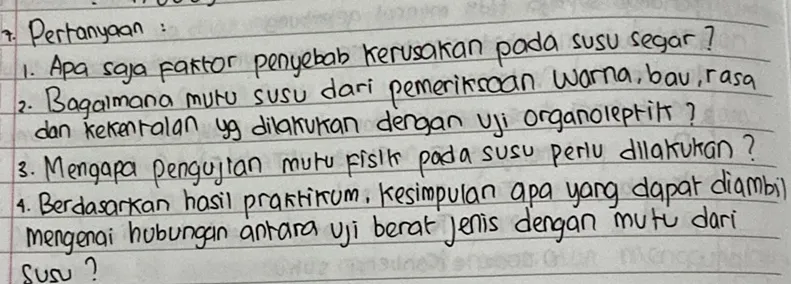 7. Pertanyaan :
1. Apa saja faktor penyebab kerusakan pada susu segar?
2. Bagaimana mutu susu dari pemeriksaan warna, bau, rasa
dan kekentalan yg dilakukan dengan uji organoleptik?
3. Mengapa pengujian mutu fisik pada susu perlu dilakukan?
4. Berdasarkan hasil praktikum, kesimpulan apa yang dapat diambil
mengenai hubungan antara uji berat jenis dengan mutu dari
susu?